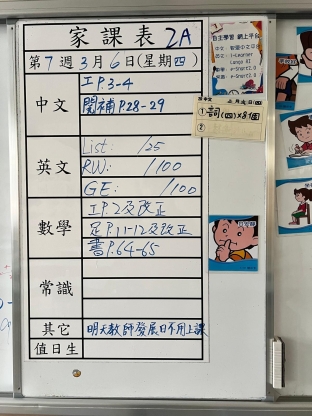 家課表 2A
第7週3月6日(星期四)
中文
工P.3-4
閱補P.28-29
英文
List: /25
RW: /100
GE: /100
數學
工P.2及改正
足P.11-12及改正
書P.64-65
常識
其它
明天教師發展日不用上課
值日生
自主學習 網上平台
①詞(四)×8個
②